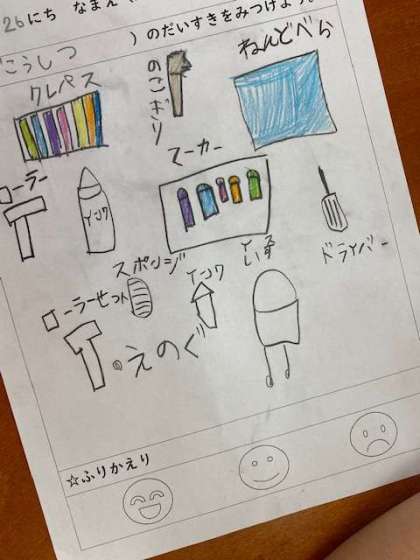 26にち なまえ
こうしつ )のだいすきをみつけよう。
クレパス
のこぎり
ねんどべら
マーカー
ローラー
インク
ドライバー
スポンジ
インク
いす
ローラーセット
えのぐ
☆ふりかえり